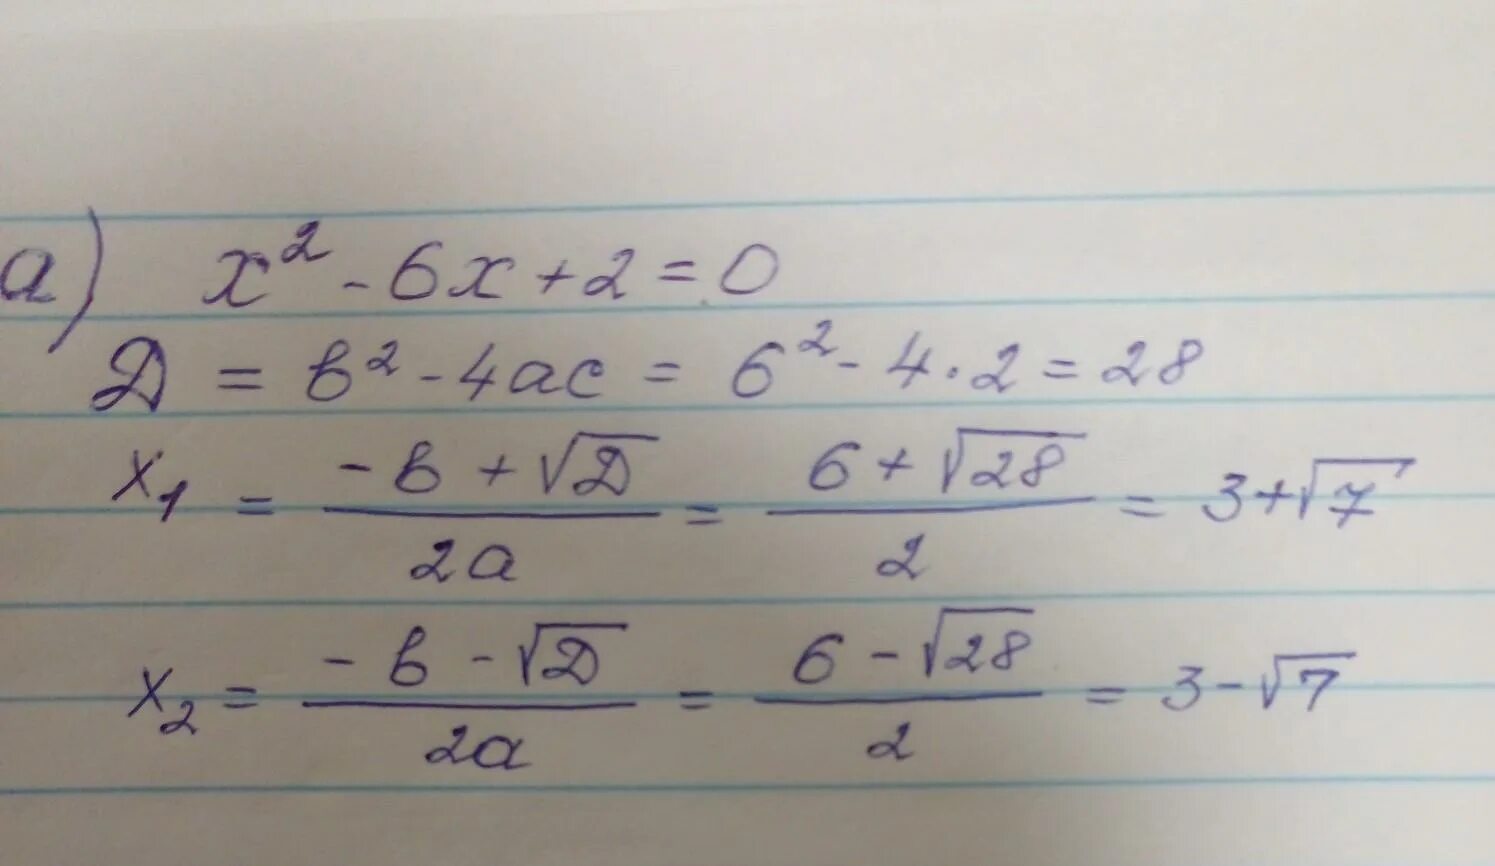 а) x² - 6x + 2 = 0
D = b² - 4ac = 6² - 4·2 = 28
x₁ = (-b + √D)/(2a) = (6 + √28)/2 = 3 + √7
x₂ = (-b - √D)/(2a) = (6 - √28)/2 = 3 - √7